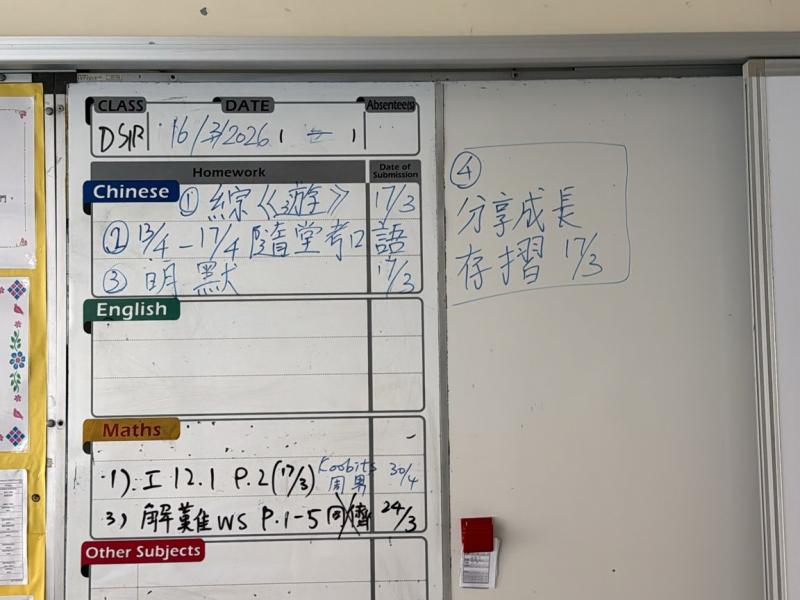 CLASS DATE Absentee(s)
16/3/2026 ( 一 )
Homework Date of Submission
Chinese ① 綜《遊》 17/3
② 13/4 - 17/4 隨堂考口語
③ 明默 17/3
English
Maths
1). 工 12.1 P.2 (17/3) Koobits 周男 30/4
3) 解難 WS P.1-5 24/3
Other Subjects
④
分享成長
存摺 17/3